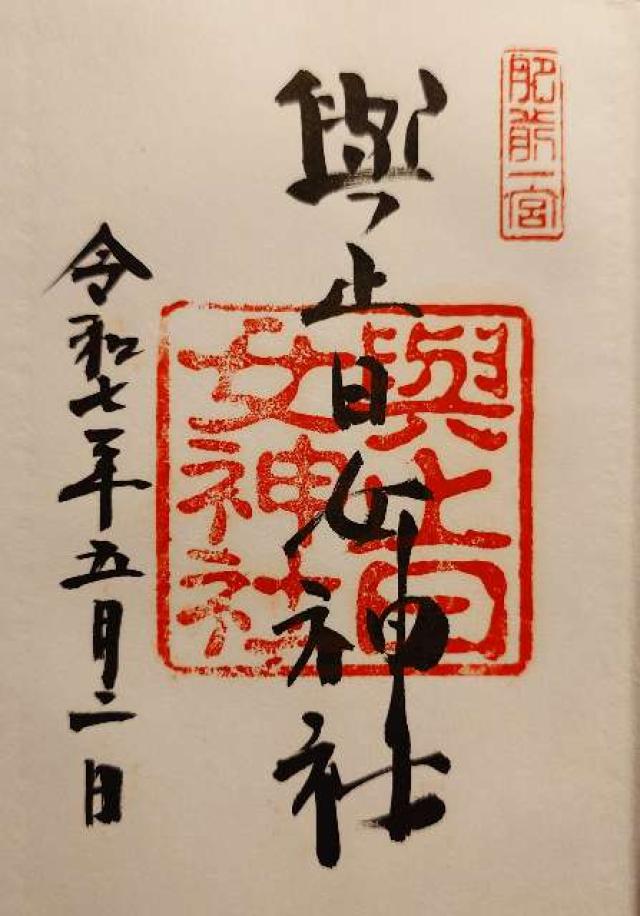 肥前一宮
與止日女神社
與止日
女神社
令和七年五月二日